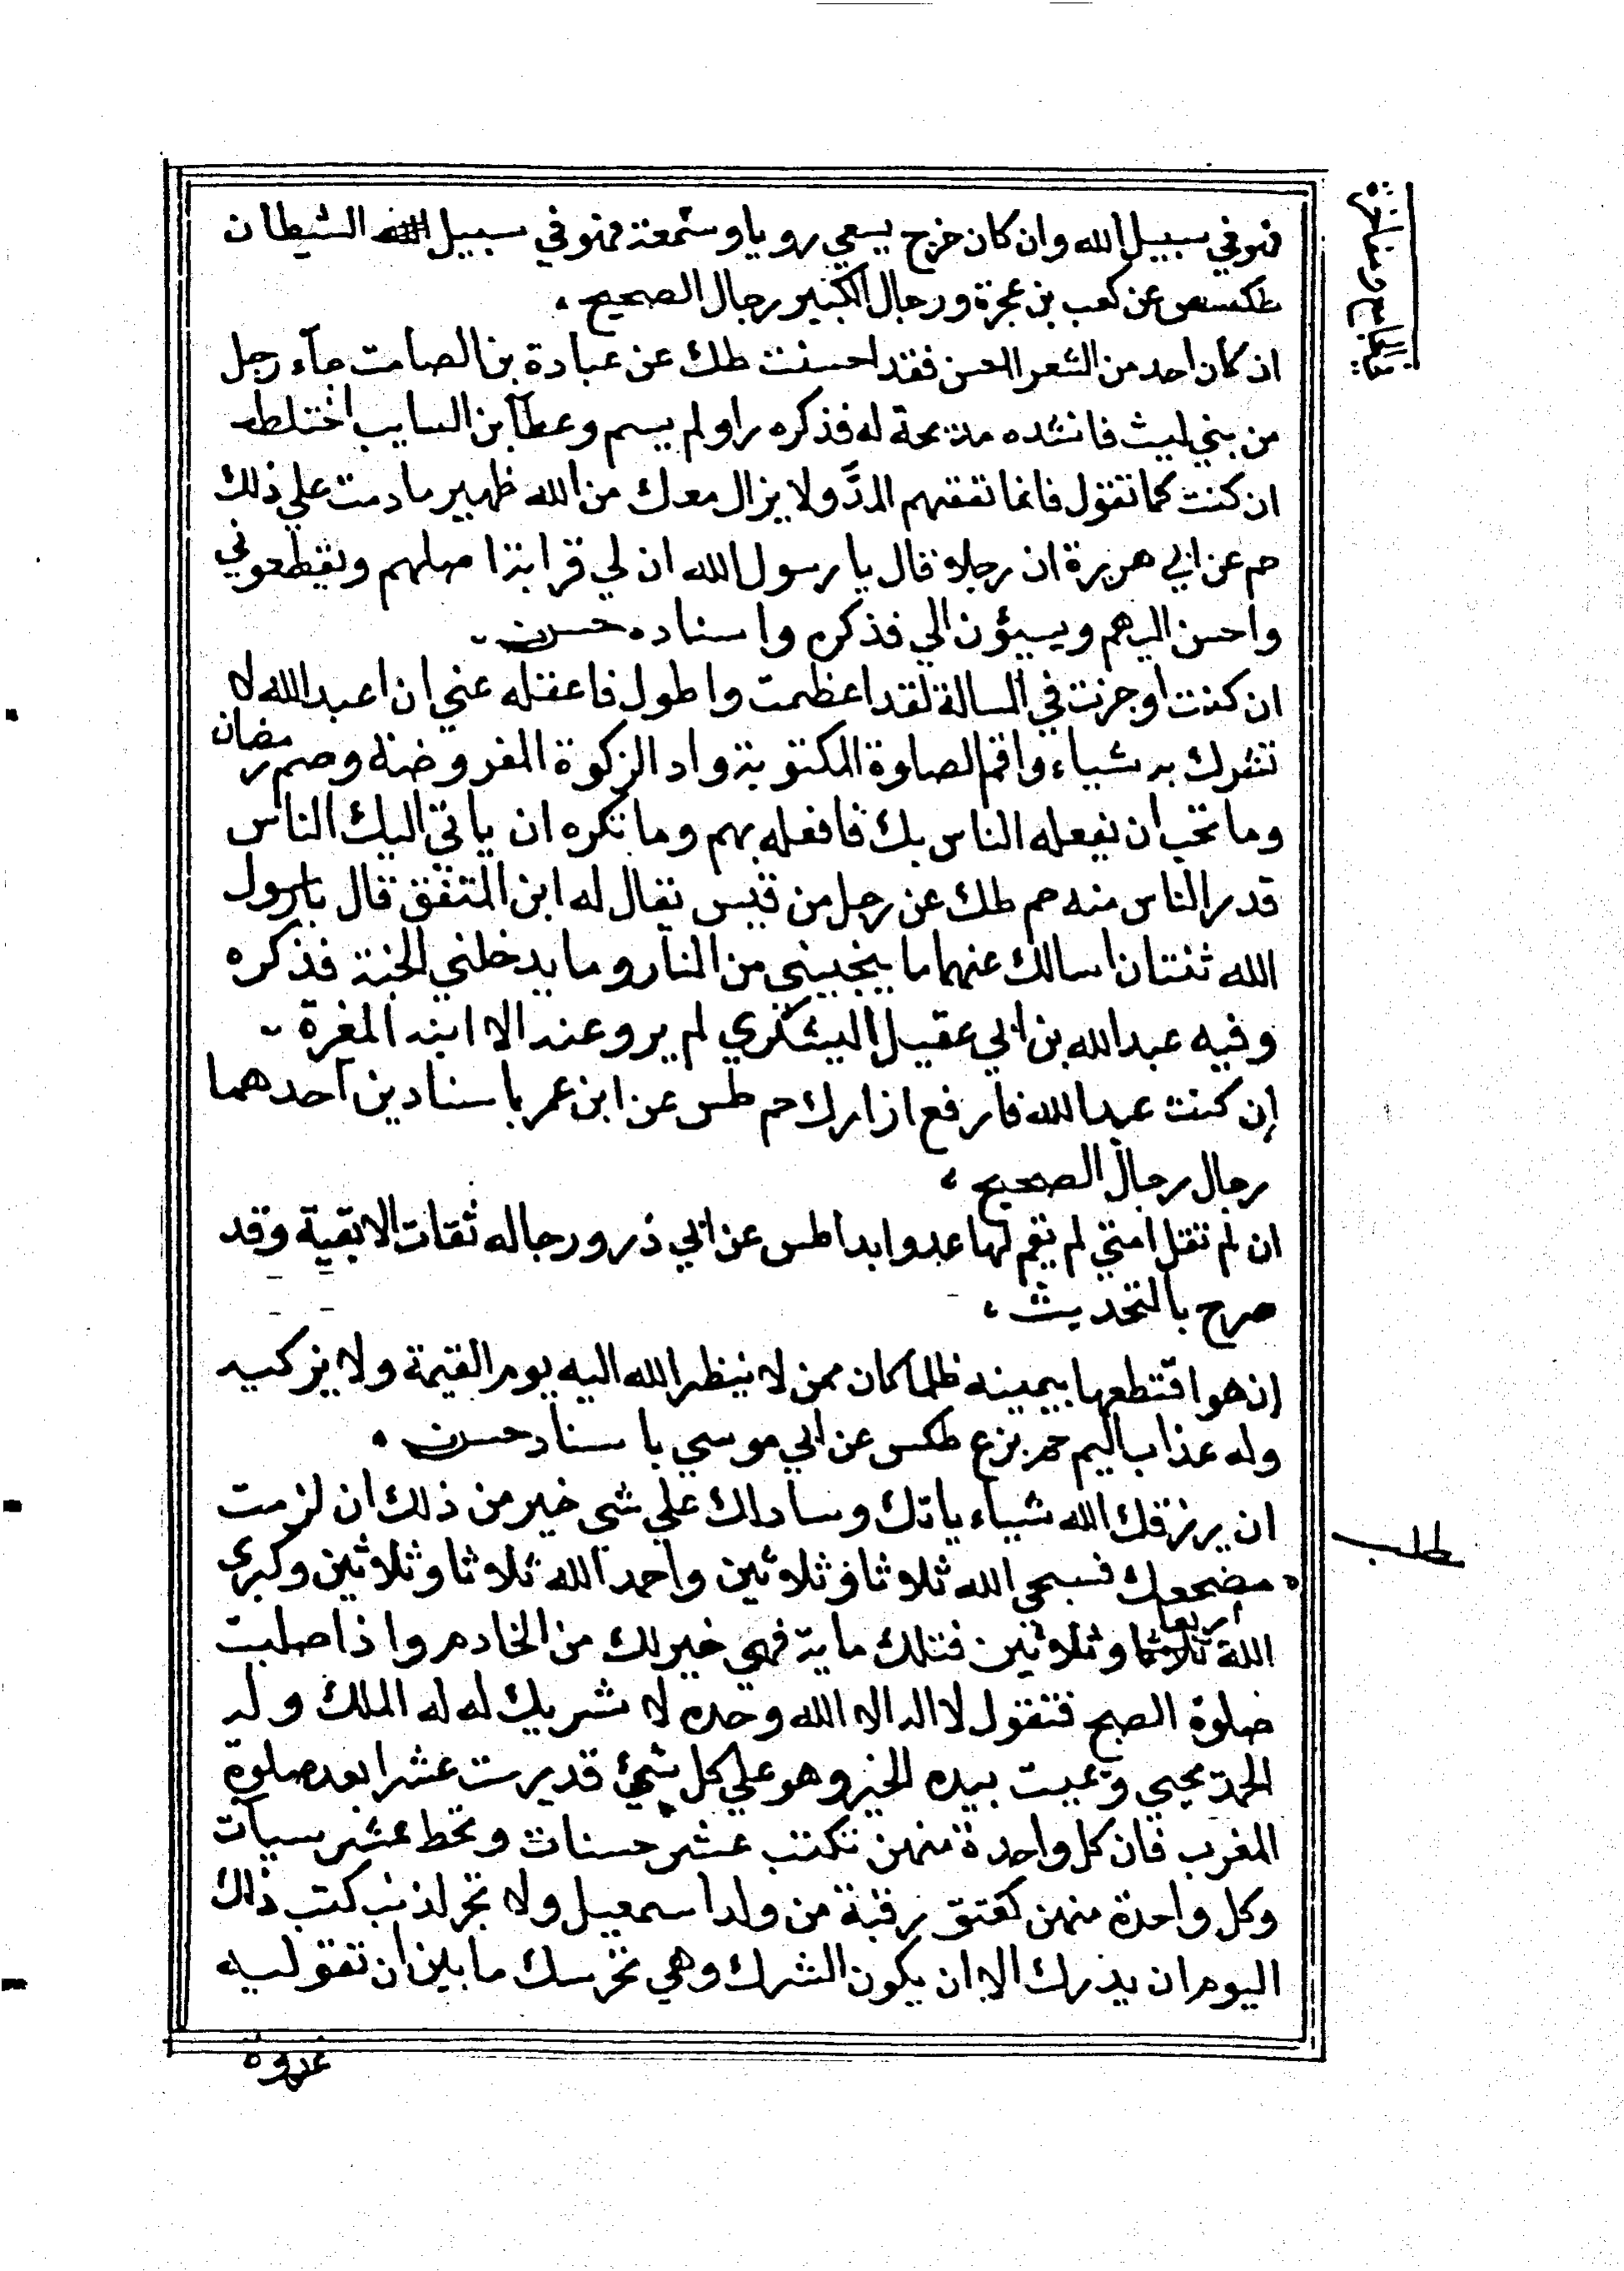 فهو في سبيل الله وان كان خرج يسعي رويا وسمعة فهو في سبيل الشيطان
طكسص عن كعب بن عجزة ورجال الكبير رجال الصحيح
ان كان احد من الشعر الحسن فقد احسنت طك عن عبادة بن الصامت جآء رجل
من بني ليث فانشده مديحة له فذكره راو لم يسم وعطآ بن السايب اختلط
ان كنت كما تقول فانما تقفهم المدّ ولا يزال معك من الله ظهير ما دمت علي ذلك
حم عن ابي هريرة ان رجلا قال يا رسول الله ان لي قرابة اصلهم ونقطعوني
واحسن اليهم ويسيؤن الي فذكره واسناده حسن
ان كنت اوجزت في المسالة لقد اعظمت واطول فاعقله عني ان اعبد الله لا
تشرك به شياء واقم الصلوة المكتوبة واد الزكوة المفروضة وصم رمضان
وما تحب ان نفعله الناس بك فافعله بهم وما تكره ان ياتي اليك الناس
قدر الناس منه حم طك عن رجل من قيس نقال له ابن المتفق قال يا رسول
الله ثنتان اسالك عنهما ما ينجيني من النار وما يدخلني الجنة فذكره
وفيه عبد الله بن ابي عقيل اليشكري لم يرو عنه الا ابنه المغرة
إن كنت عبد الله فارفع ازارك حم طس عن ابن عمر باسنادين احدهما
رجال رجال الصحيح
ان لم تقتل امتي لم يقم لها عدو ابدا طس عن ابي ذر ورجاله ثقات الا بقية وقد
صرح بالتحديث
إن هو اقتطعها بيمينه ظلما كان ممن لا ينظر الله اليه يوم القيمة ولا يزكيه
وله عذاب اليم حم بزع طكس عن ابي موسي باسناد حسن
ان يرزقك الله شياء ياتك وسادلك علي شي خير من ذلك ان لزمت
مضجعك فسبحي الله ثلاثا وثلاثين واحمد الله ثلاثا وثلاثين وكبري
الله اربعا وثلاثين فتلك ماية فهي خير لك من الخادم واذا صليت
صلوة الصبح فتقول لا اله الا الله وحده لا شريك له له الملك وله
الحمد يحيي ويميت بيده الخير وهو علي كل شيئ قدير ست عشرا بعد صلوة
المغرب فان كل واحدة منهن تكتب عشر حسنات وتحط عشر سيآت
وكل واحدة منهن كعتق رقبة من ولد اسمعيل ولا تجر لذنب كتب ذلك
اليوم ان يدرك الا ان يكون الشرك وهي تحرسك ما بين ان تقوليه
غدوة